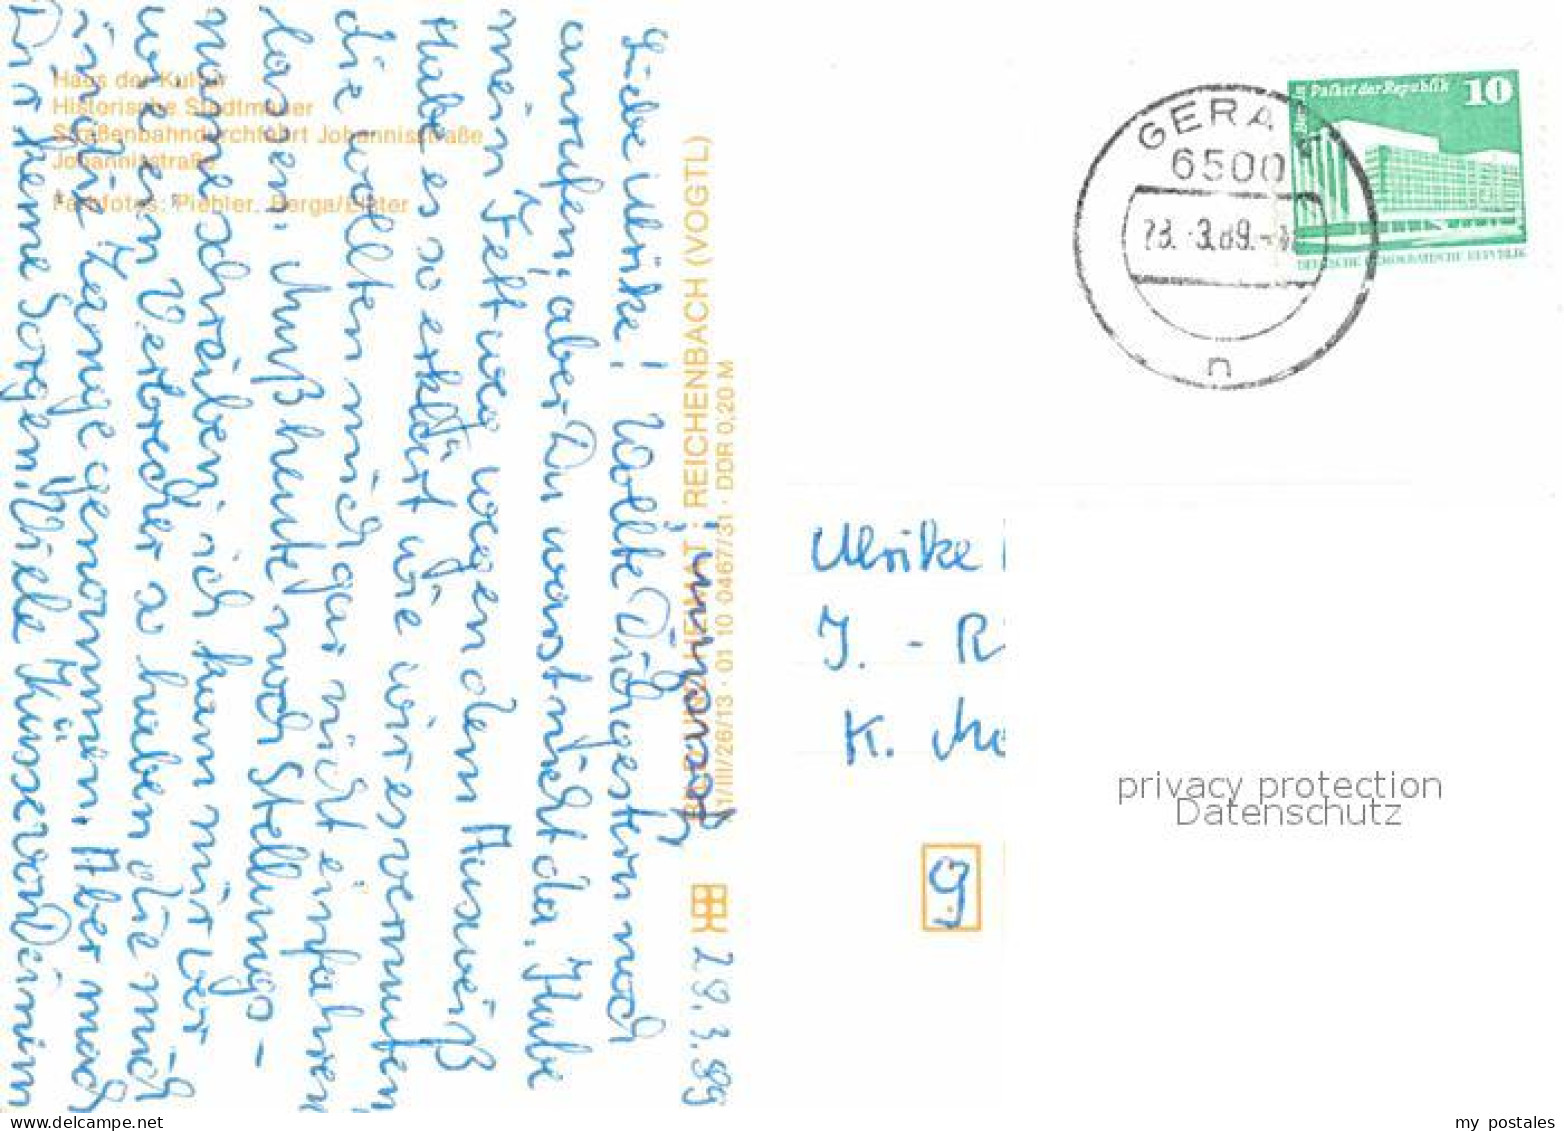 Haus der Kultur
Historische Stadtmauer
Straßenbahndurchfahrt Johannisstraße
Johannisstraße
Farbfotos: Piehler, Berga/Elster
BILD UND HEIMAT · REICHENBACH (VOGTL)
A1/III/26/13 · 01 10 0467/31 · DDR 0,20 M
29.3.89
Liebe Ulrike! Wollte Dich gestern noch
anrufen, aber Du warst nicht da. Habe
mein Fett weg wegen dem Ausweiß
Habe es so erklärt wie wir es vermuten
die wollten mich gar nicht einfahren
lassen. Muß heute noch Stellungs-
nahme schreiben, ich kam mir vor
wie ein Verbrecher so haben die mich
in die Zange genommen. Aber mach
Dir keine Sorgen. Viele Küsse von Deinem
Joachim!
GERA 1
6500
23.-3.89.-
n
Berlin Palast der Republik
10
DEUTSCHE DEMOKRATISCHE REPUBLIK
Ulrike
J. - R
K. Ma
9
privacy protection
Datenschutz
my postales
www.delcampe.net